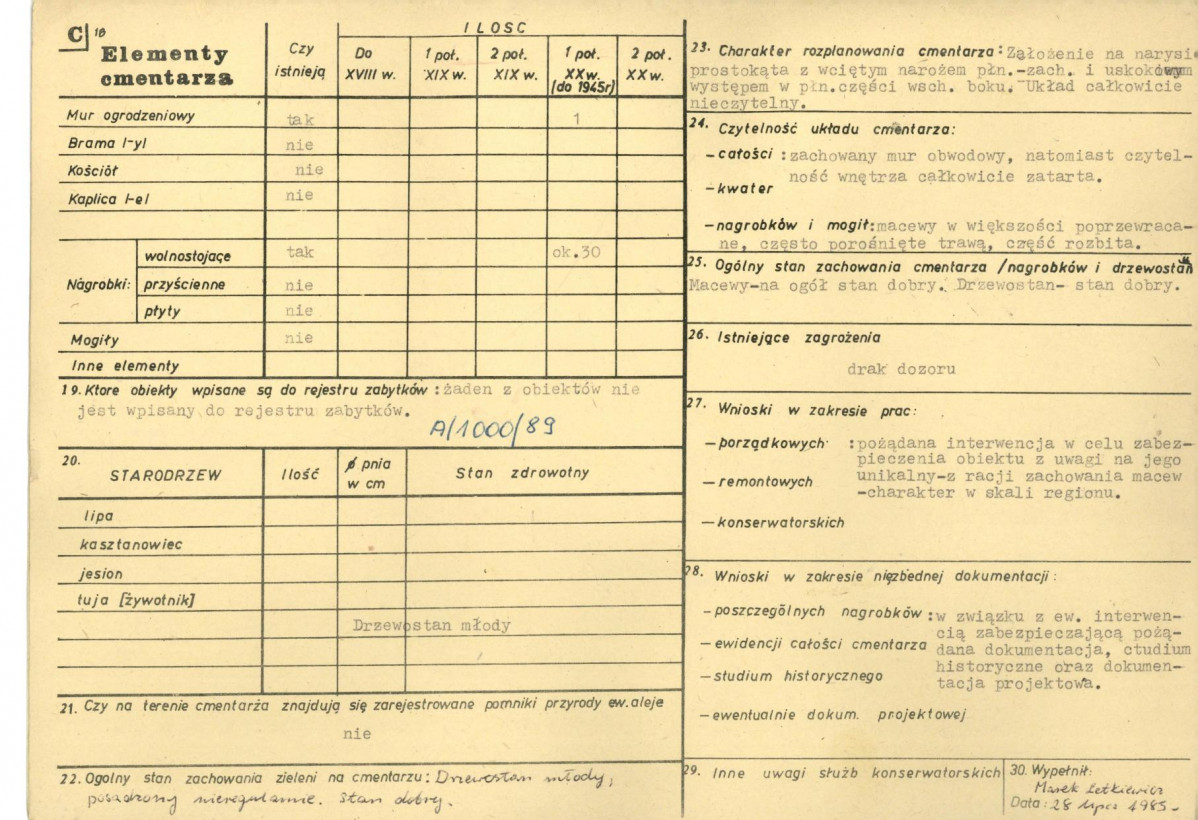 C 18
Elementy
cmentarza
Czy
istnieją
ILOSC
Do
XVIII w.
1 poł.
XIX w.
2 poł.
XIX w.
1 poł.
XX w.
(do 1945r)
2 poł.
XX w.
Mur ogrodzeniowy tak 1
Brama /-y/ nie
Kościół nie
Kaplica /-e/ nie
Nagrobki:
wolnostojące tak ok.30
przyścienne nie
płyty nie
Mogiły nie
Inne elementy
19. Ktore obiekty wpisane są do rejestru zabytków : żaden z obiektów nie
jest wpisany do rejestru zabytków.
A/1000/89
20.
STARODRZEW Ilość ø pnia
w cm
Stan zdrowotny
lipa
kasztanowiec
jesion
tuja [żywotnik]
Drzewostan młody
21. Czy na terenie cmentarza znajdują się zarejestrowane pomniki przyrody ew. aleje
nie
22. Ogolny stan zachowania zieleni na cmentarzu: Drzewostan młody,
posadzony nieregularnie. Stan dobry.
23. Charakter rozplanowania cmentarza: Założenie na narysie
prostokąta z wciętym narożem płn.-zach. i uskokowym
występem w płn.części wsch. boku. Układ całkowicie
nieczytelny.
24. Czytelność układu cmentarza:
- całości : zachowany mur obwodowy, natomiast czytel-
ność wnętrza całkowicie zatarta.
- kwater
- nagrobków i mogił: macewy w większości poprzewraca-
ne, często porośnięte trawą, część rozbita.
25. Ogólny stan zachowania cmentarza /nagrobków i drzewostan
Macewy-na ogół stan dobry. Drzewostan- stan dobry.
26. Istniejące zagrożenia
drak dozoru
27. Wnioski w zakresie prac:
- porządkowych : pożądana interwencja w celu zabez-
pieczenia obiektu z uwagi na jego
- remontowych unikalny-z racji zachowania macew
-charakter w skali regionu.
- konserwatorskich
28. Wnioski w zakresie niezbednej dokumentacji :
- poszczególnych nagrobków : w związku z ew. interwen-
cią zabezpieczającą pożą-
- ewidencji całości cmentarza dana dokumentacja, ctudium
historyczne oraz dokumen-
- studium historycznego tacja projektowa.
- ewentualnie dokum. projektowej
29. Inne uwagi służb konserwatorskich
30. Wypełnił:
Marek Letkiewicz
Data : 28 lipca 1985